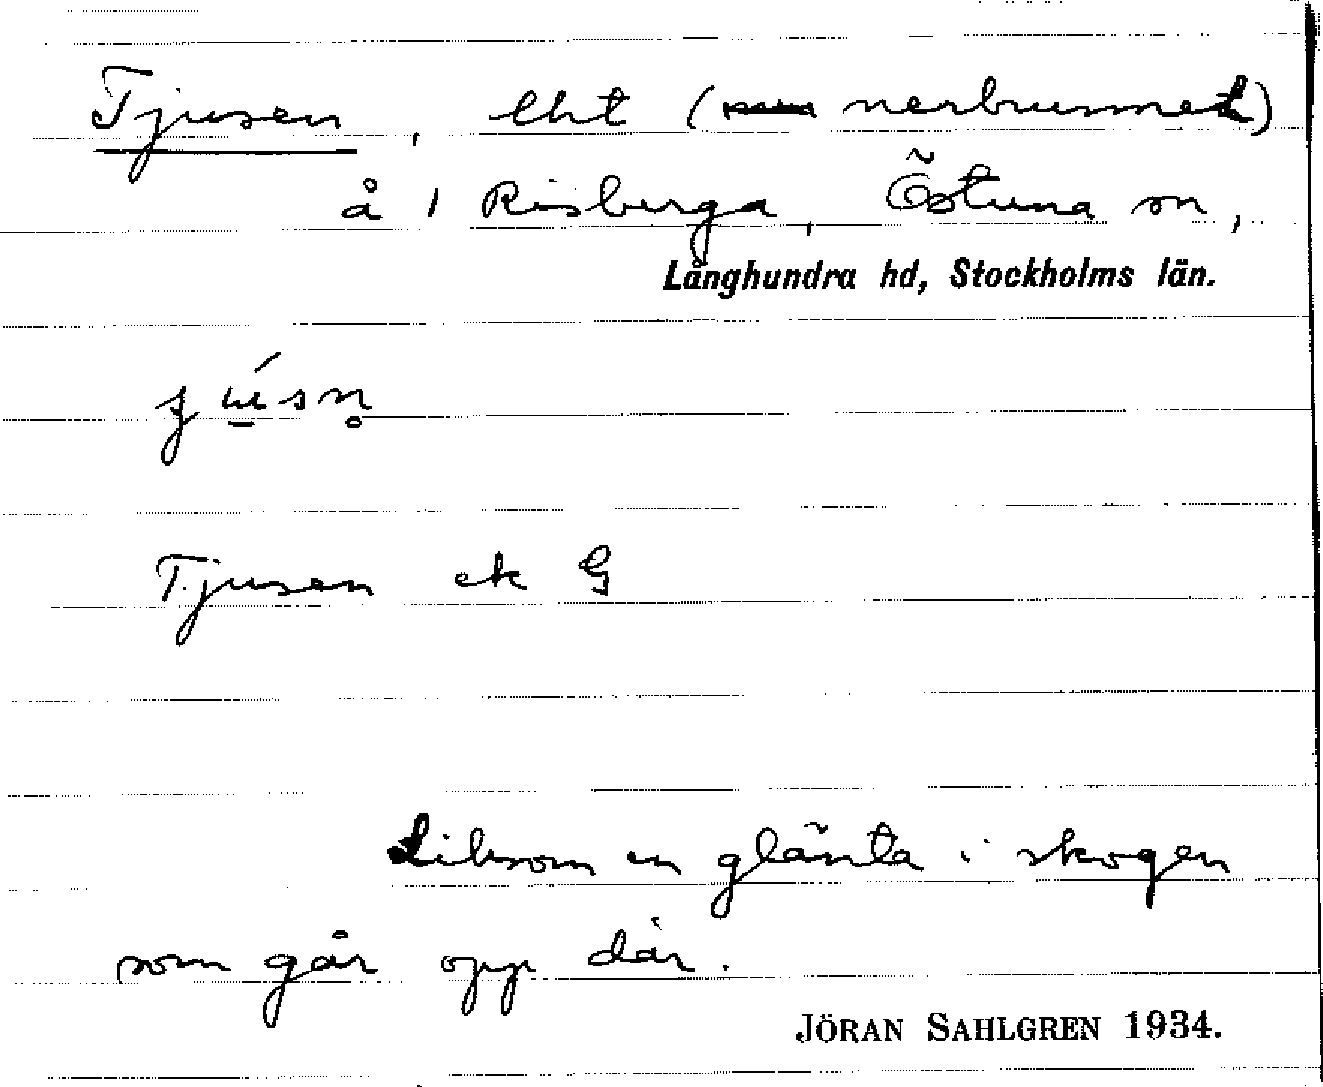 Tjusen, lht (nerbrunnet)
å 1 Risberga, Östuna sn,
Långhundra hd, Stockholms län.
Tjusen ek G
Liksom en glänta i skogen
som går opp där.
JÖRAN SAHLGREN 1934.